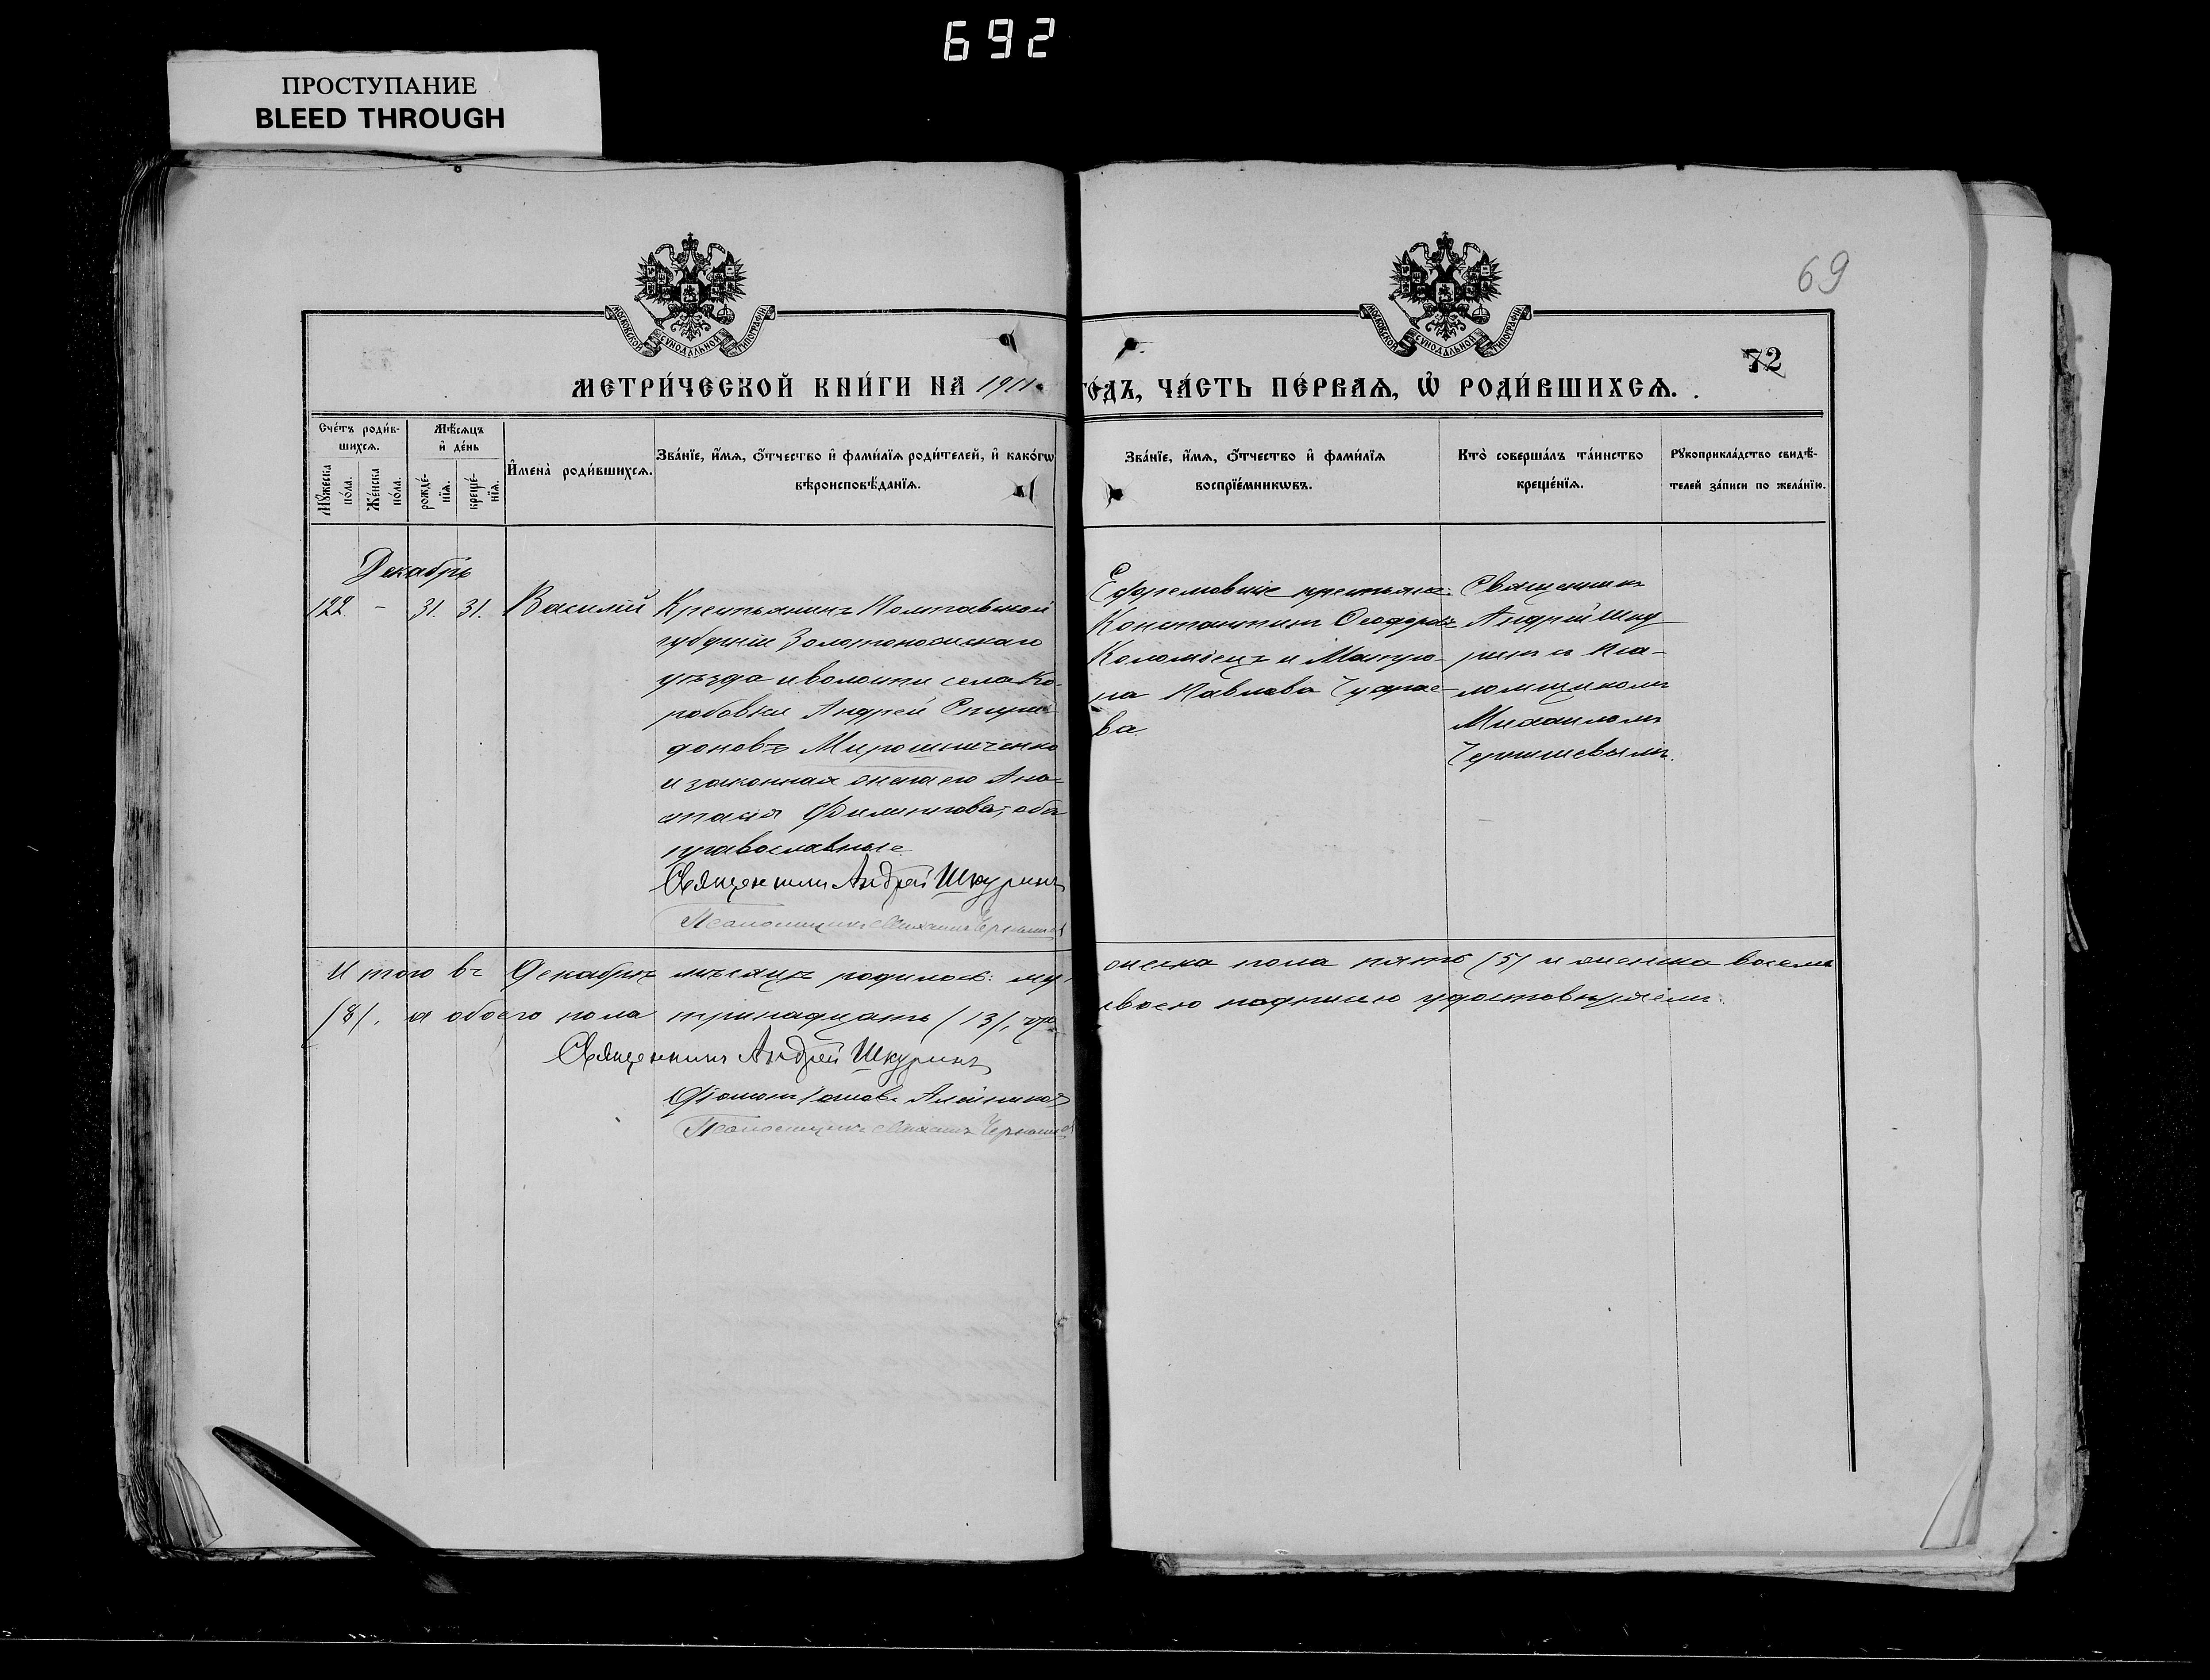 692
ПРОСТУПАНИЕ
BLEED THROUGH
69
МОСКОВСКОЙ СѴНОДАЛЬНОЙ ТИПОГРАФІИ
МОСКОВСКОЙ СѴНОДАЛЬНОЙ ТИПОГРАФІИ
72
МЕТРИ́ЧЕСКОЙ КНИ́ГИ НА 1911 ГО́ДЪ, ЧА́СТЬ ПЕ́РВАѦ, Ѡ҆ РОДИ́ВШИХСѦ.
Сче́тъ роди́в-
шихсѧ.
Мѣ́сѧцъ
и҆ де́нь
Мꙋ́жеска по́ла.
Же́нска по́ла.
рожде́-нїѧ.
креще́-нїѧ.
И҆мена̀ роди́вшихсѧ.
Зва́нїе, и҆́мѧ, ѻ҆́тчество и҆ фами́лїѧ роди́телей, и҆ како́гѡ
вѣроисповѣ́данїѧ.
Зва́нїе, и҆́мѧ, ѻ҆́тчество и҆ фами́лїѧ
воспрїе́мникѡвъ.
Кто̀ соверша́лъ та́инство
креще́нїѧ.
Рꙋкоприкла́дство свидѣ́-
телей за́писи по жела́нїю.
Декабрь
122 - 31. 31. Василій
Крестьянинъ Полтавской
губерніи Золотоношскаго
уѣзда и волости села Ко-
робовки Андрей Спири-
доновъ Мирошниченко
и законная жена его Ана-
стасія Филиппова, оба
православные
Священникъ Андрей Шкуринъ
Псаломщикъ Михаилъ Чернышев
Ефремовскіе крестьяне:
Константинъ Ѳеодоровъ
Коломіецъ и Матро-
на Павлова
ва.
Священникъ
Андрей Шку-
ринъ и пса-
ломщикомъ
Михаиломъ
Чернышевымъ.
Итого въ Декабрѣ мѣсяцѣ родилось: му- жеска пола пять (5) и женска восемь
(8), а обоего пола тринадцать (13), что своею подписью удостовѣряемъ:
Священникъ Андрей Шкуринъ
Псаломщикъ Михаилъ Чернышев